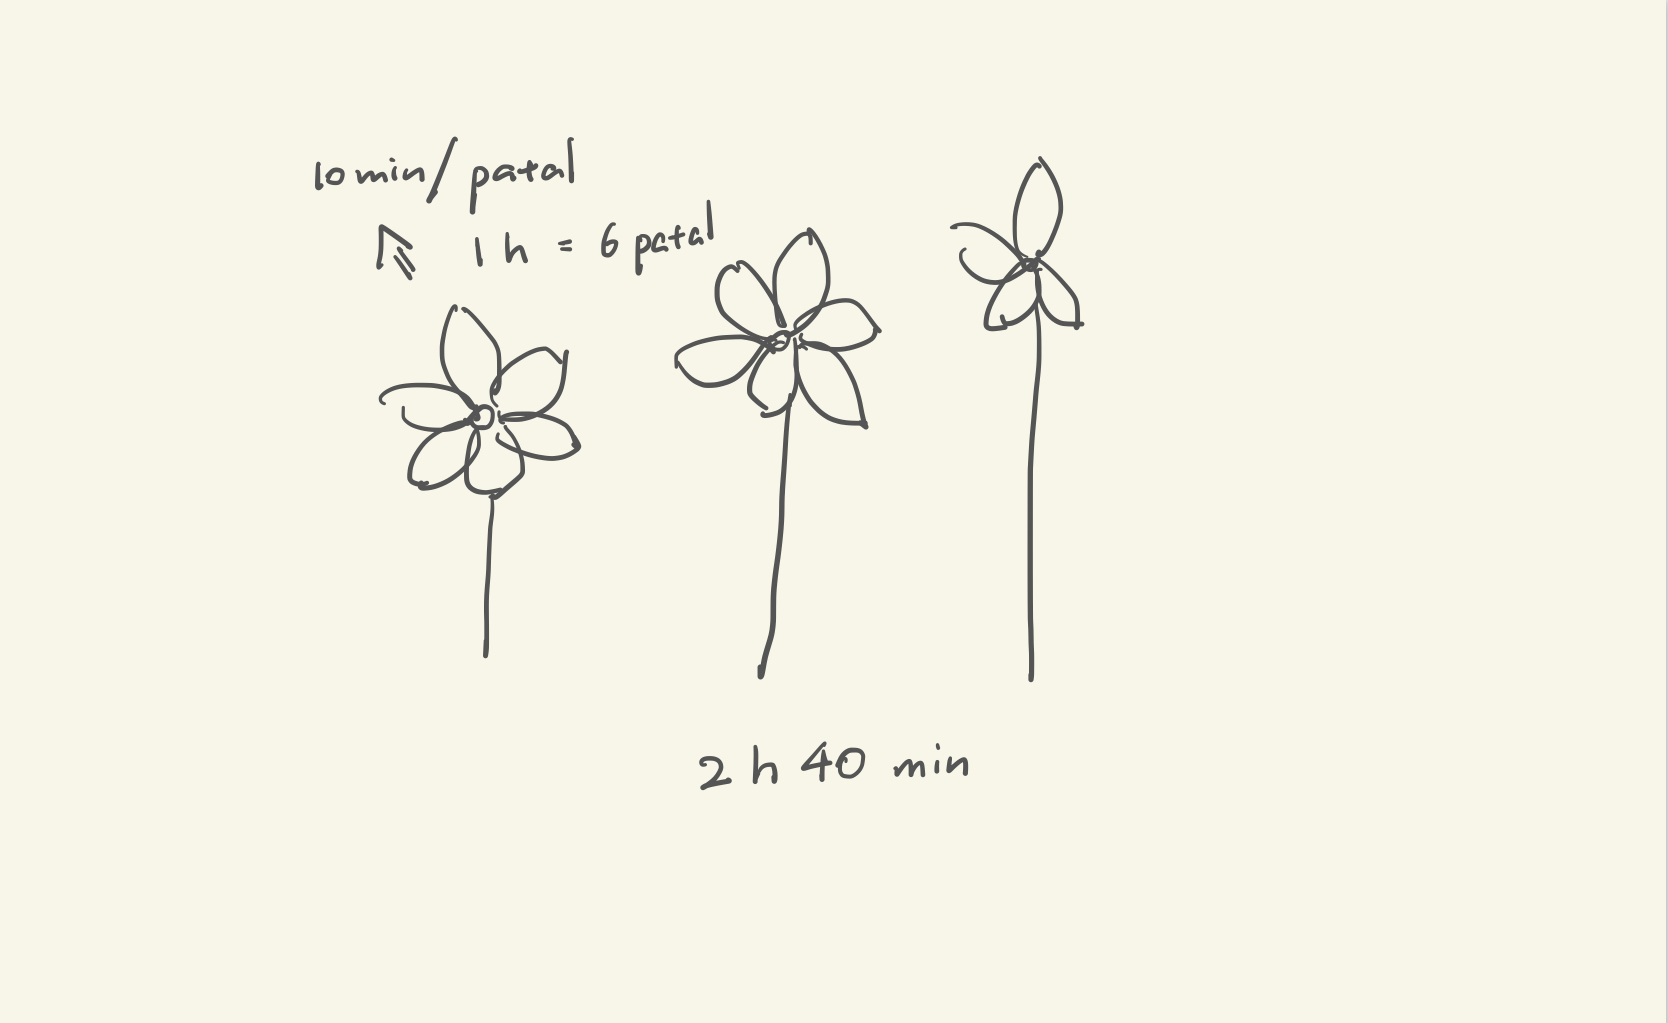 10 min / patal
1 h = 6 patal
2 h 40 min